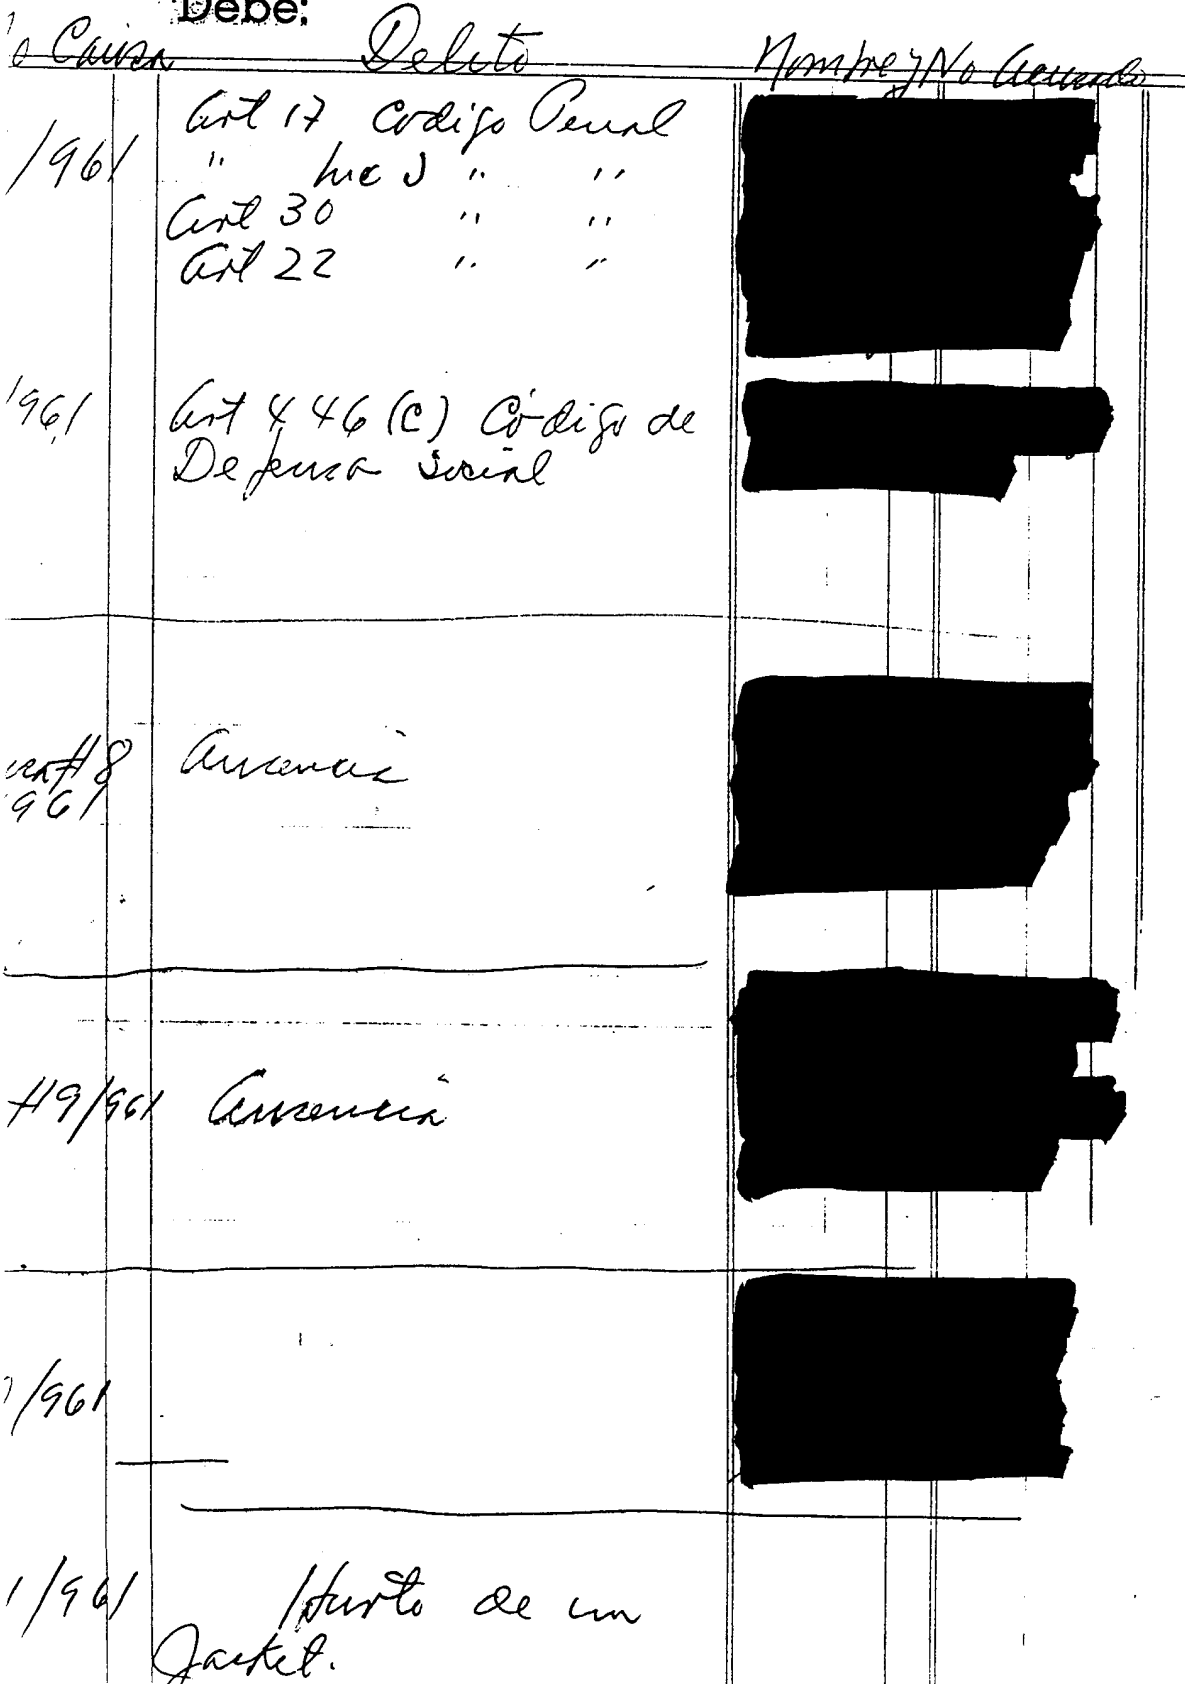 Debe:
o Causa Delito Nombre y No Acusado
/961 Art 17 Codigo Penal
" Inc J " "
Art 30 " "
Art 22 " "
1961 Art 446 (C) Código de
Defensa Social
#8 Ausencia
961
#9/961 Ausencia
/961
1/961 Hurto de un
Jacket.